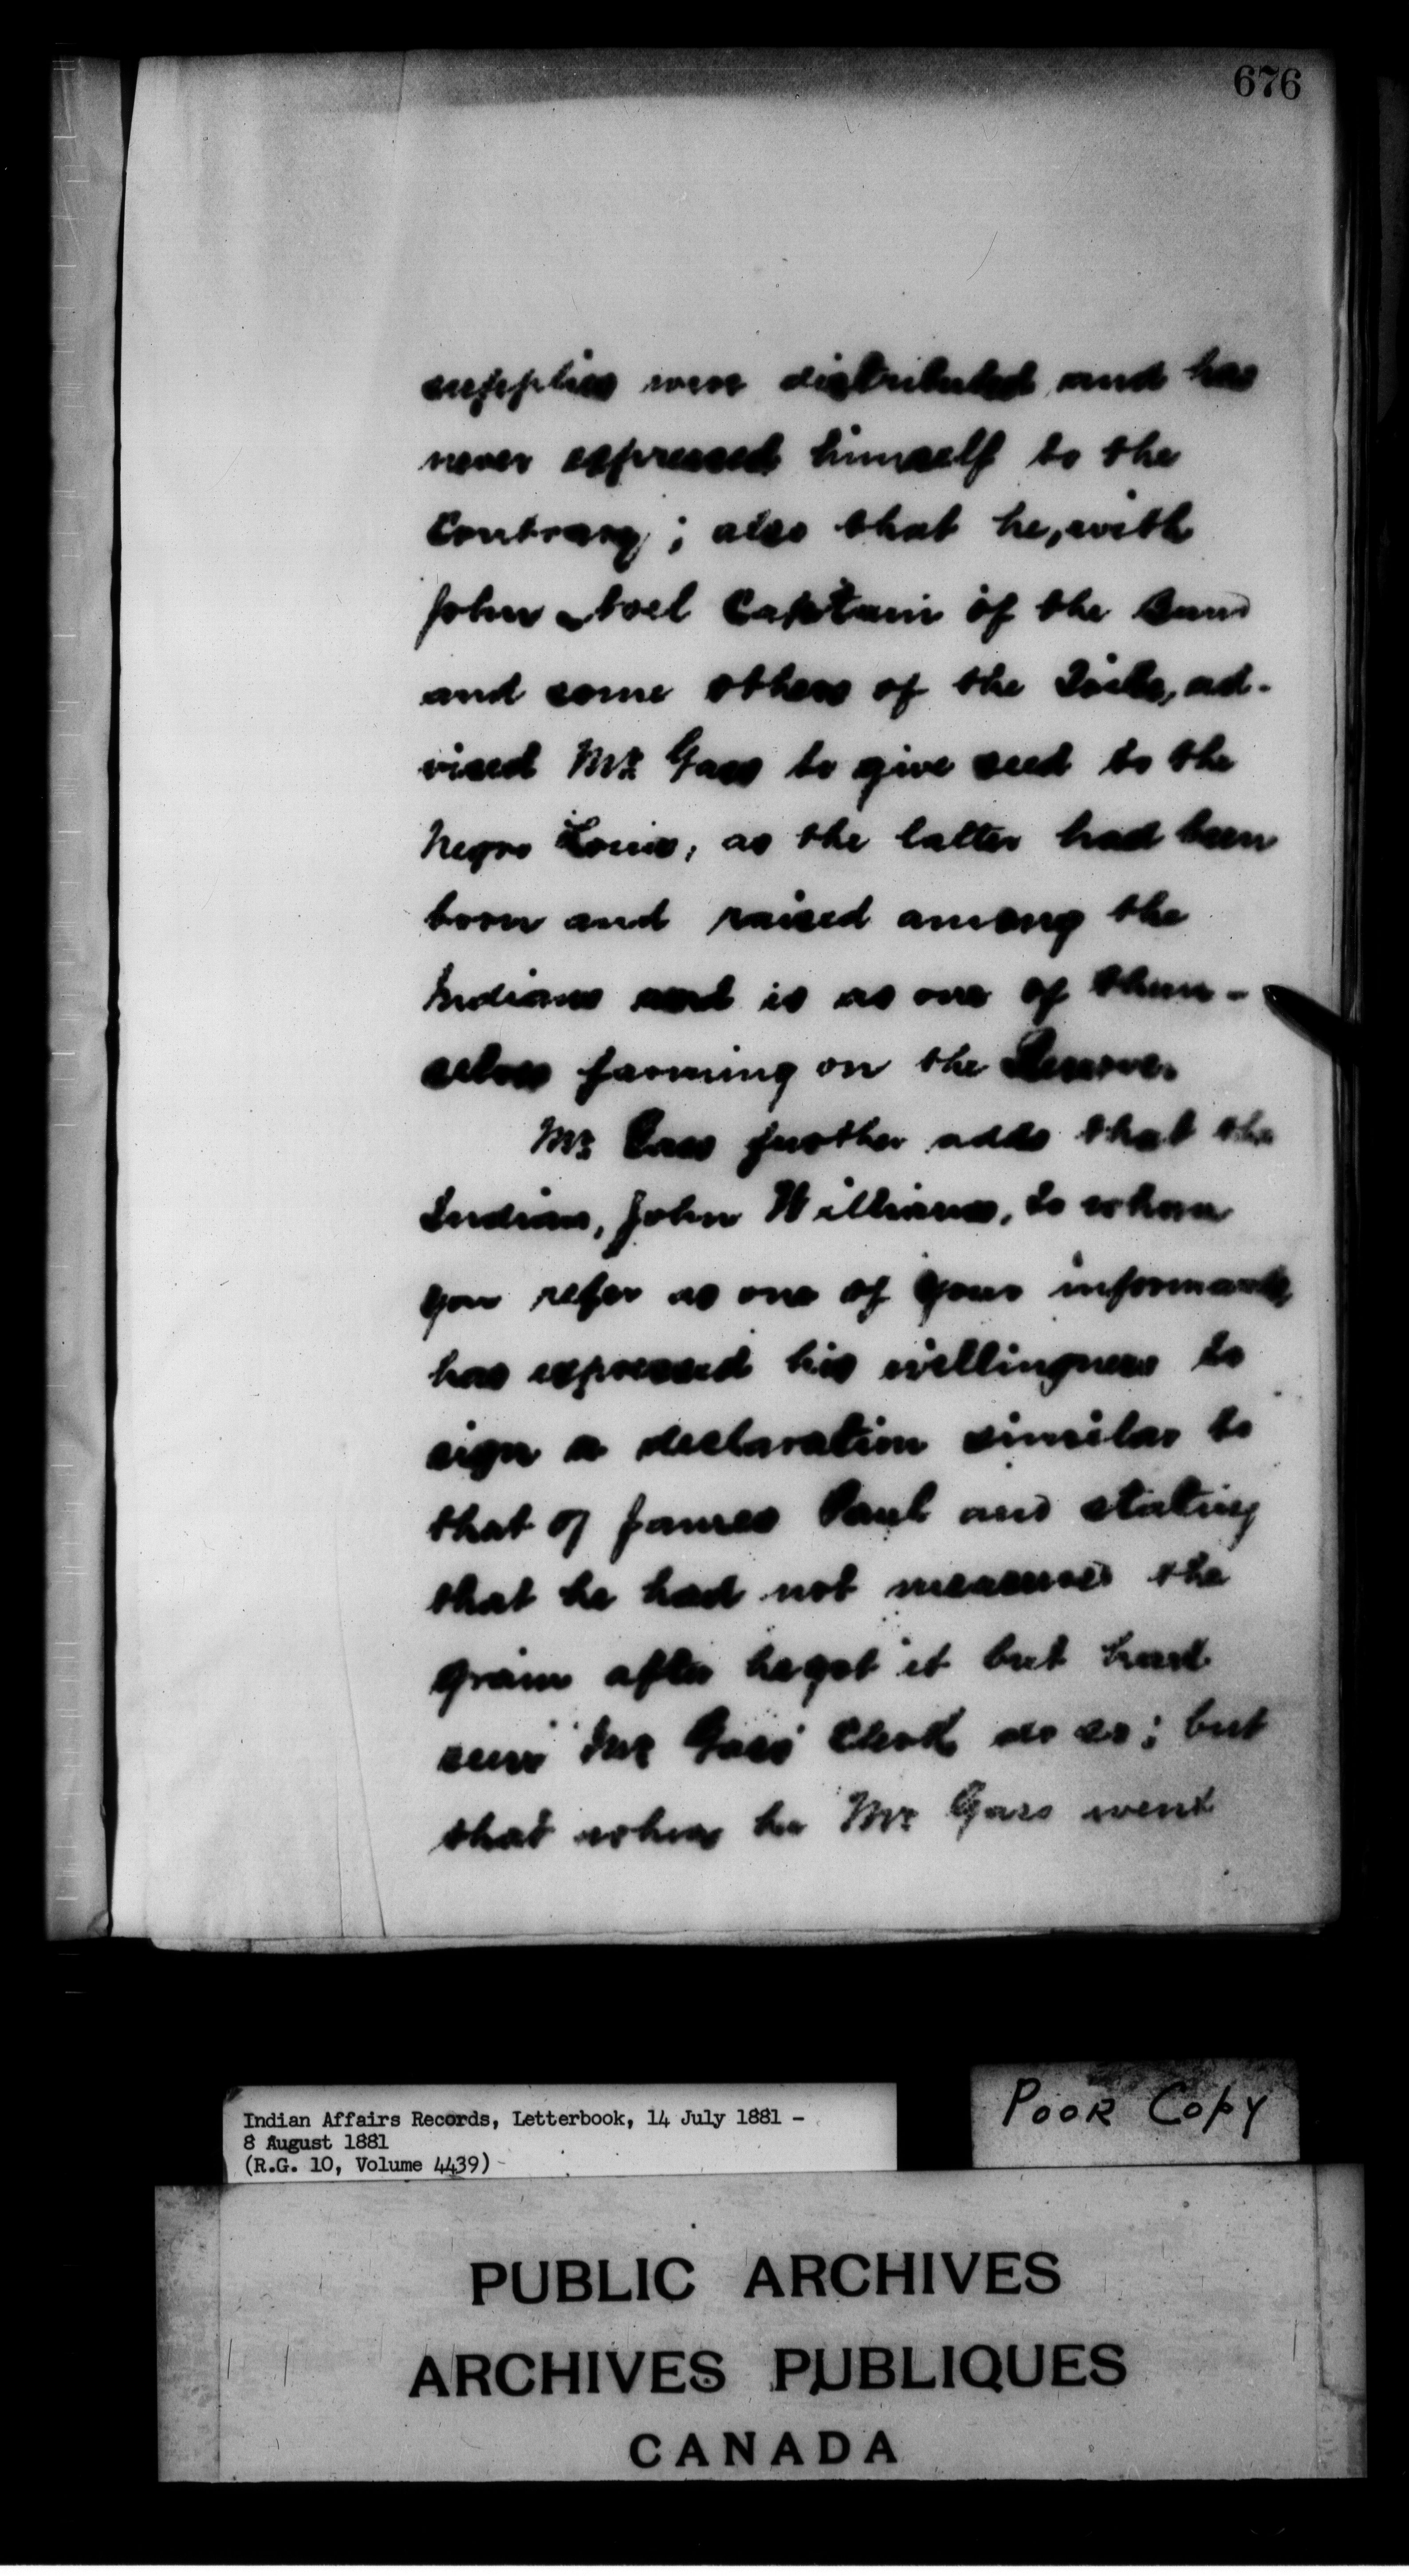 676
supplies were distributed and has
never expressed himself to the
Contrary; also that he, with
John Noel Captain of the Band
and some others of the Tribe, ad-
vised Mr. Gass to give seed to the
Negro Louis, as the latter had been
born and raised among the
Indians and is as one of them-
selves farming on the Reserve.
Mr. Gass further adds that the
Indian, John Williams, to whom
you refer as one of your informants
has expressed his willingness to
sign a declaration similar to
that of James Paul and stating
that he had not measured the
grain after he got it but had
seen Mr Gass' Clerk do so; but
that when he Mr. Gass went
Indian Affairs Records, Letterbook, 14 July 1881 -
8 August 1881
(R.G. 10, Volume 4439)
POOR COPY
PUBLIC ARCHIVES
ARCHIVES PUBLIQUES
CANADA